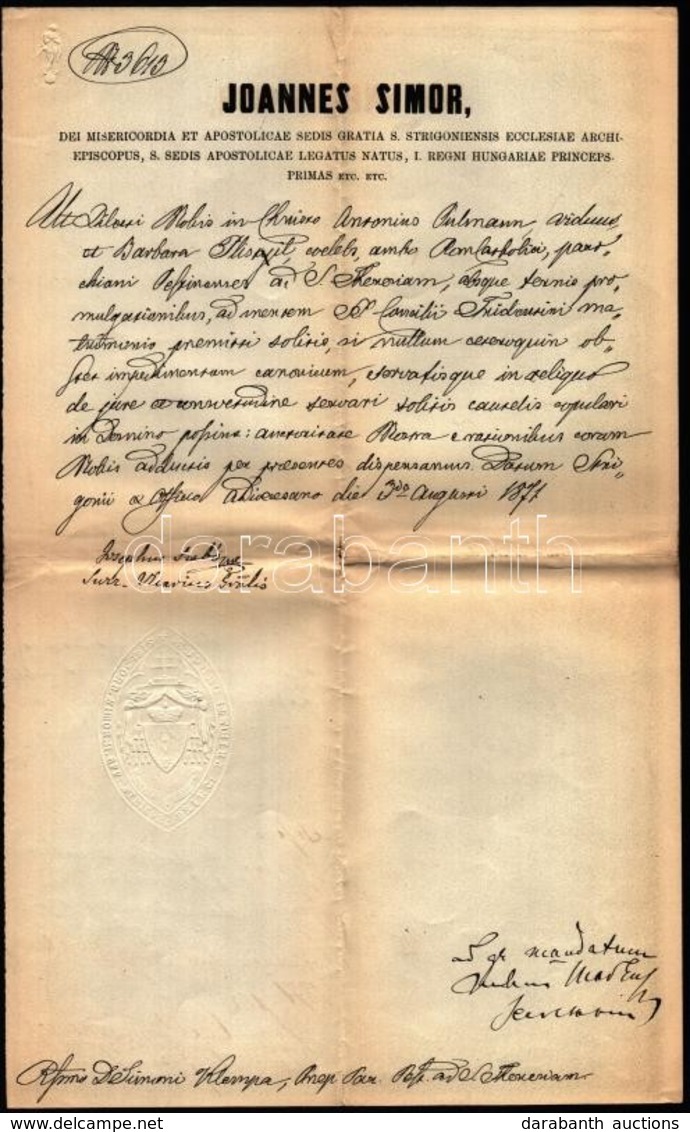 Nr 3613
JOANNES SIMOR,
DEI MISERICORDIA ET APOSTOLICAE SEDIS GRATIA S. STRIGONIENSIS ECCLESIAE ARCHI-
EPISCOPUS, S. SEDIS APOSTOLICAE LEGATUS NATUS, I. REGNI HUNGARIAE PRINCEPS-
PRIMAS ETC. ETC.
Ut Dilecti Nobis in Christo Antonius Pulmann, viduus,
et Barbara coelebs, ambo Rom Catholici, paro-
chiani Pestinenses ad S. Theresiam, absque ternis pro-
mulgationibus, ad mentem Sti Concilii Tridentini ma-
trimonio premitti solitis, si nullum ceteroquin ob-
stet impedimentum canonicum, servatisque in reliquo
de jure et consvetudine servari solitis cautelis copulari
in Domino possint: auctoritate Nostra e rationibus coram
Nobis adductis per praesentes dispensamus. Datum Stri-
gonii ex Officio Adioecesano die 3tia Augusti 1871
Josephus
Surr. Vicarius Gnalis
darabanth
ad gr mandatum
Secretarius
Rssmo D Simoni Klempa, Praep. Par. Pest. ad S. Theresiam
darabanth auctions